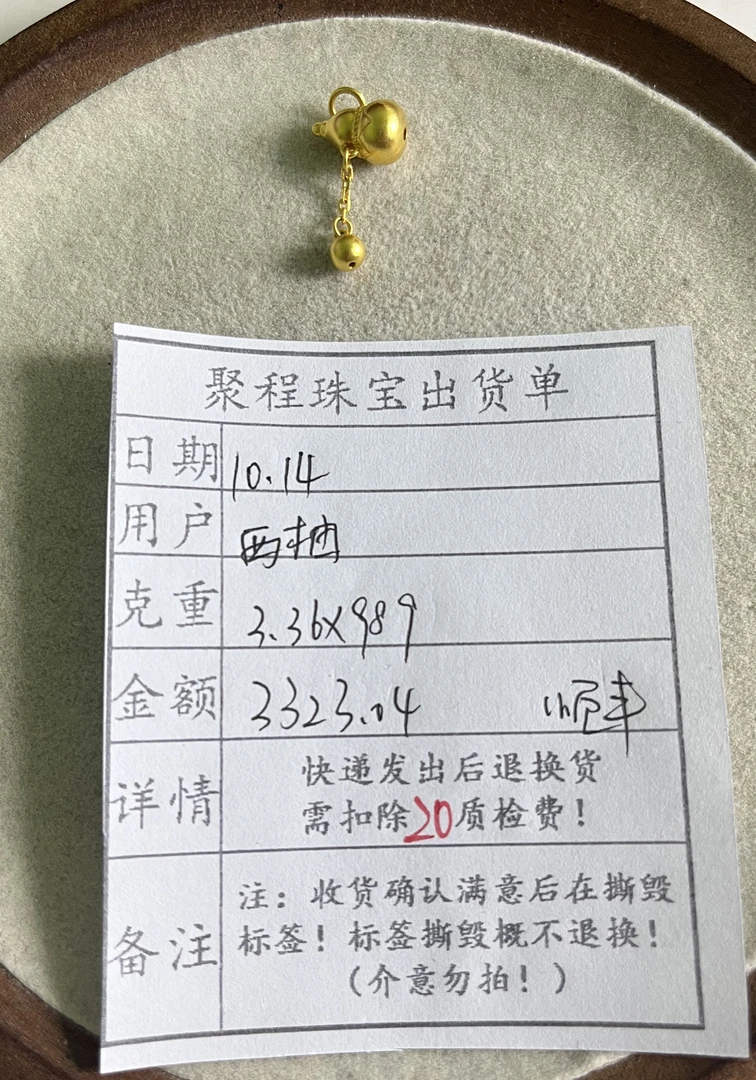 聚程珠宝出货单
日期 10.14
用户 西柚
克重 3.36×989
金额 3323.04 顺丰
详情 快递发出后退换货
需扣除20质检费！
备注 注：收货确认满意后在撕毁
标签！标签撕毁概不退换！
（介意勿拍！）